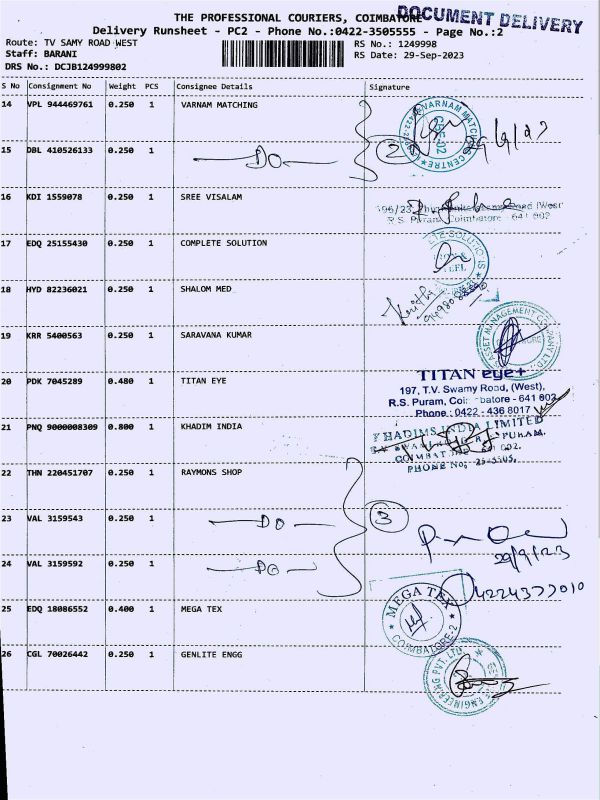 THE PROFESSIONAL COURIERS, COIMBATORE
DOCUMENT DELIVERY
Delivery Runsheet - PC2 - Phone No.:0422-3505555 - Page No.:2
Route: TV SAMY ROAD WEST
RS No.: 1249998
Staff: BARANI
RS Date: 29-Sep-2023
DRS No.: DCJB124999802
S No Consignment No Weight PCS Consignee Details Signature
14 VPL 944469761 0.250 1 VARNAM MATCHING
VARNAM MATCHING CENTRE
CBE-02
29/9/23
15 DBL 410526133 0.250 1
DO
2
16 KDI 1559078 0.250 1 SREE VISALAM
R.S. Puram, Coimbatore - 641 002
17 EDQ 25155430 0.250 1 COMPLETE SOLUTION
18 HYD 82236021 0.250 1 SHALOM MED
19 KRR 5400563 0.250 1 SARAVANA KUMAR
ASSET MANAGEMENT COMPANY LTD
20 PDK 7045289 0.480 1 TITAN EYE
TITAN eye+
197, T.V. Swamy Road, (West),
R.S. Puram, Coimbatore - 641 002
Phone : 0422 - 436 8017
21 PNQ 9000008309 0.800 1 KHADIM INDIA
KHADIMS INDIA LIMITED
PURAM.
COIMBATORE 641 002.
PHONE No;
22 THN 220451707 0.250 1 RAYMONS SHOP
23 VAL 3159543 0.250 1
DO
3
29/9/23
24 VAL 3159592 0.250 1
DO
04224377010
25 EDQ 18086552 0.400 1 MEGA TEX
MEGA TEX
COIMBATORE-2
26 CGL 70026442 0.250 1 GENLITE ENGG
ENGINEERING PVT. LTD.